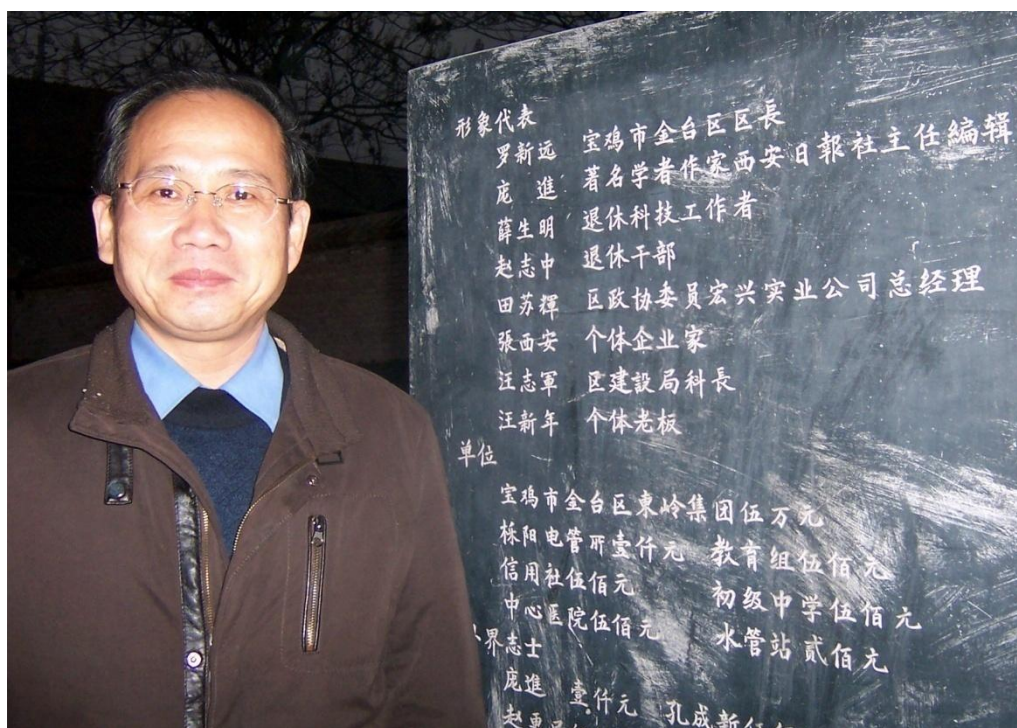 形象代表
罗新远 宝鸡市金台区区長
庞進 著名学者作家西安日報社主任編辑
薛生明 退休科技工作者
赵志中 退休干部
田苏輝 区政协委員宏兴实业公司总经理
張西安 个体企业家
汪志軍 区建設局科長
汪新年 个体老板
单位
宝鸡市金台区東岭集团伍万元
栎阳电管所壹仟元 教育组伍佰元
信用社伍佰元 初级中学伍佰元
中心医院伍佰元 水管站贰佰元
界志士
庞進 壹仟元 孔成新伍
赵